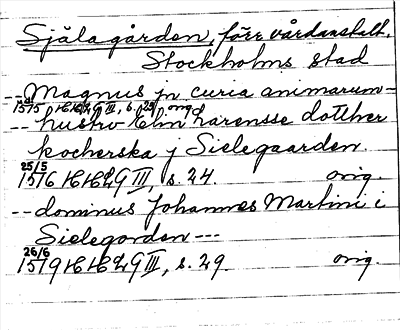 Själagården, förr vårdanstalt,
Stockholms stad
-- Magnus jn curia animarum --
1515 HH29 III, s. 23, orig.
-- hustrv Elin larensse dotther
kocherska j Sielegaarden.
25/5
1516 HH29 III, s. 24. orig.
-- dominus Johannes Martini i
Sielegorden ---
26/6
1519 HH29 III, s. 29. orig.